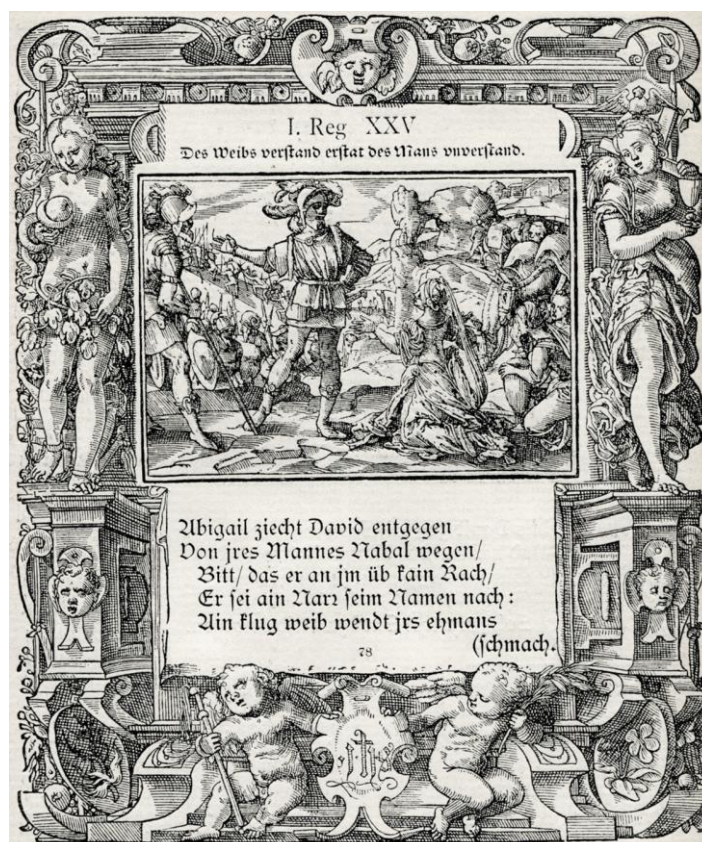 I. Reg XXV
Des Weibs verstand erstat des Mans vnverstand.
Abigail ziecht David entgegen
Von jres Mannes Nabal wegen/
Bitt/ das er an jm üb kain Rach/
Er sei ain Narr seim Namen nach:
Ain klug weib wendt jrs ehmans
(schmach.
78